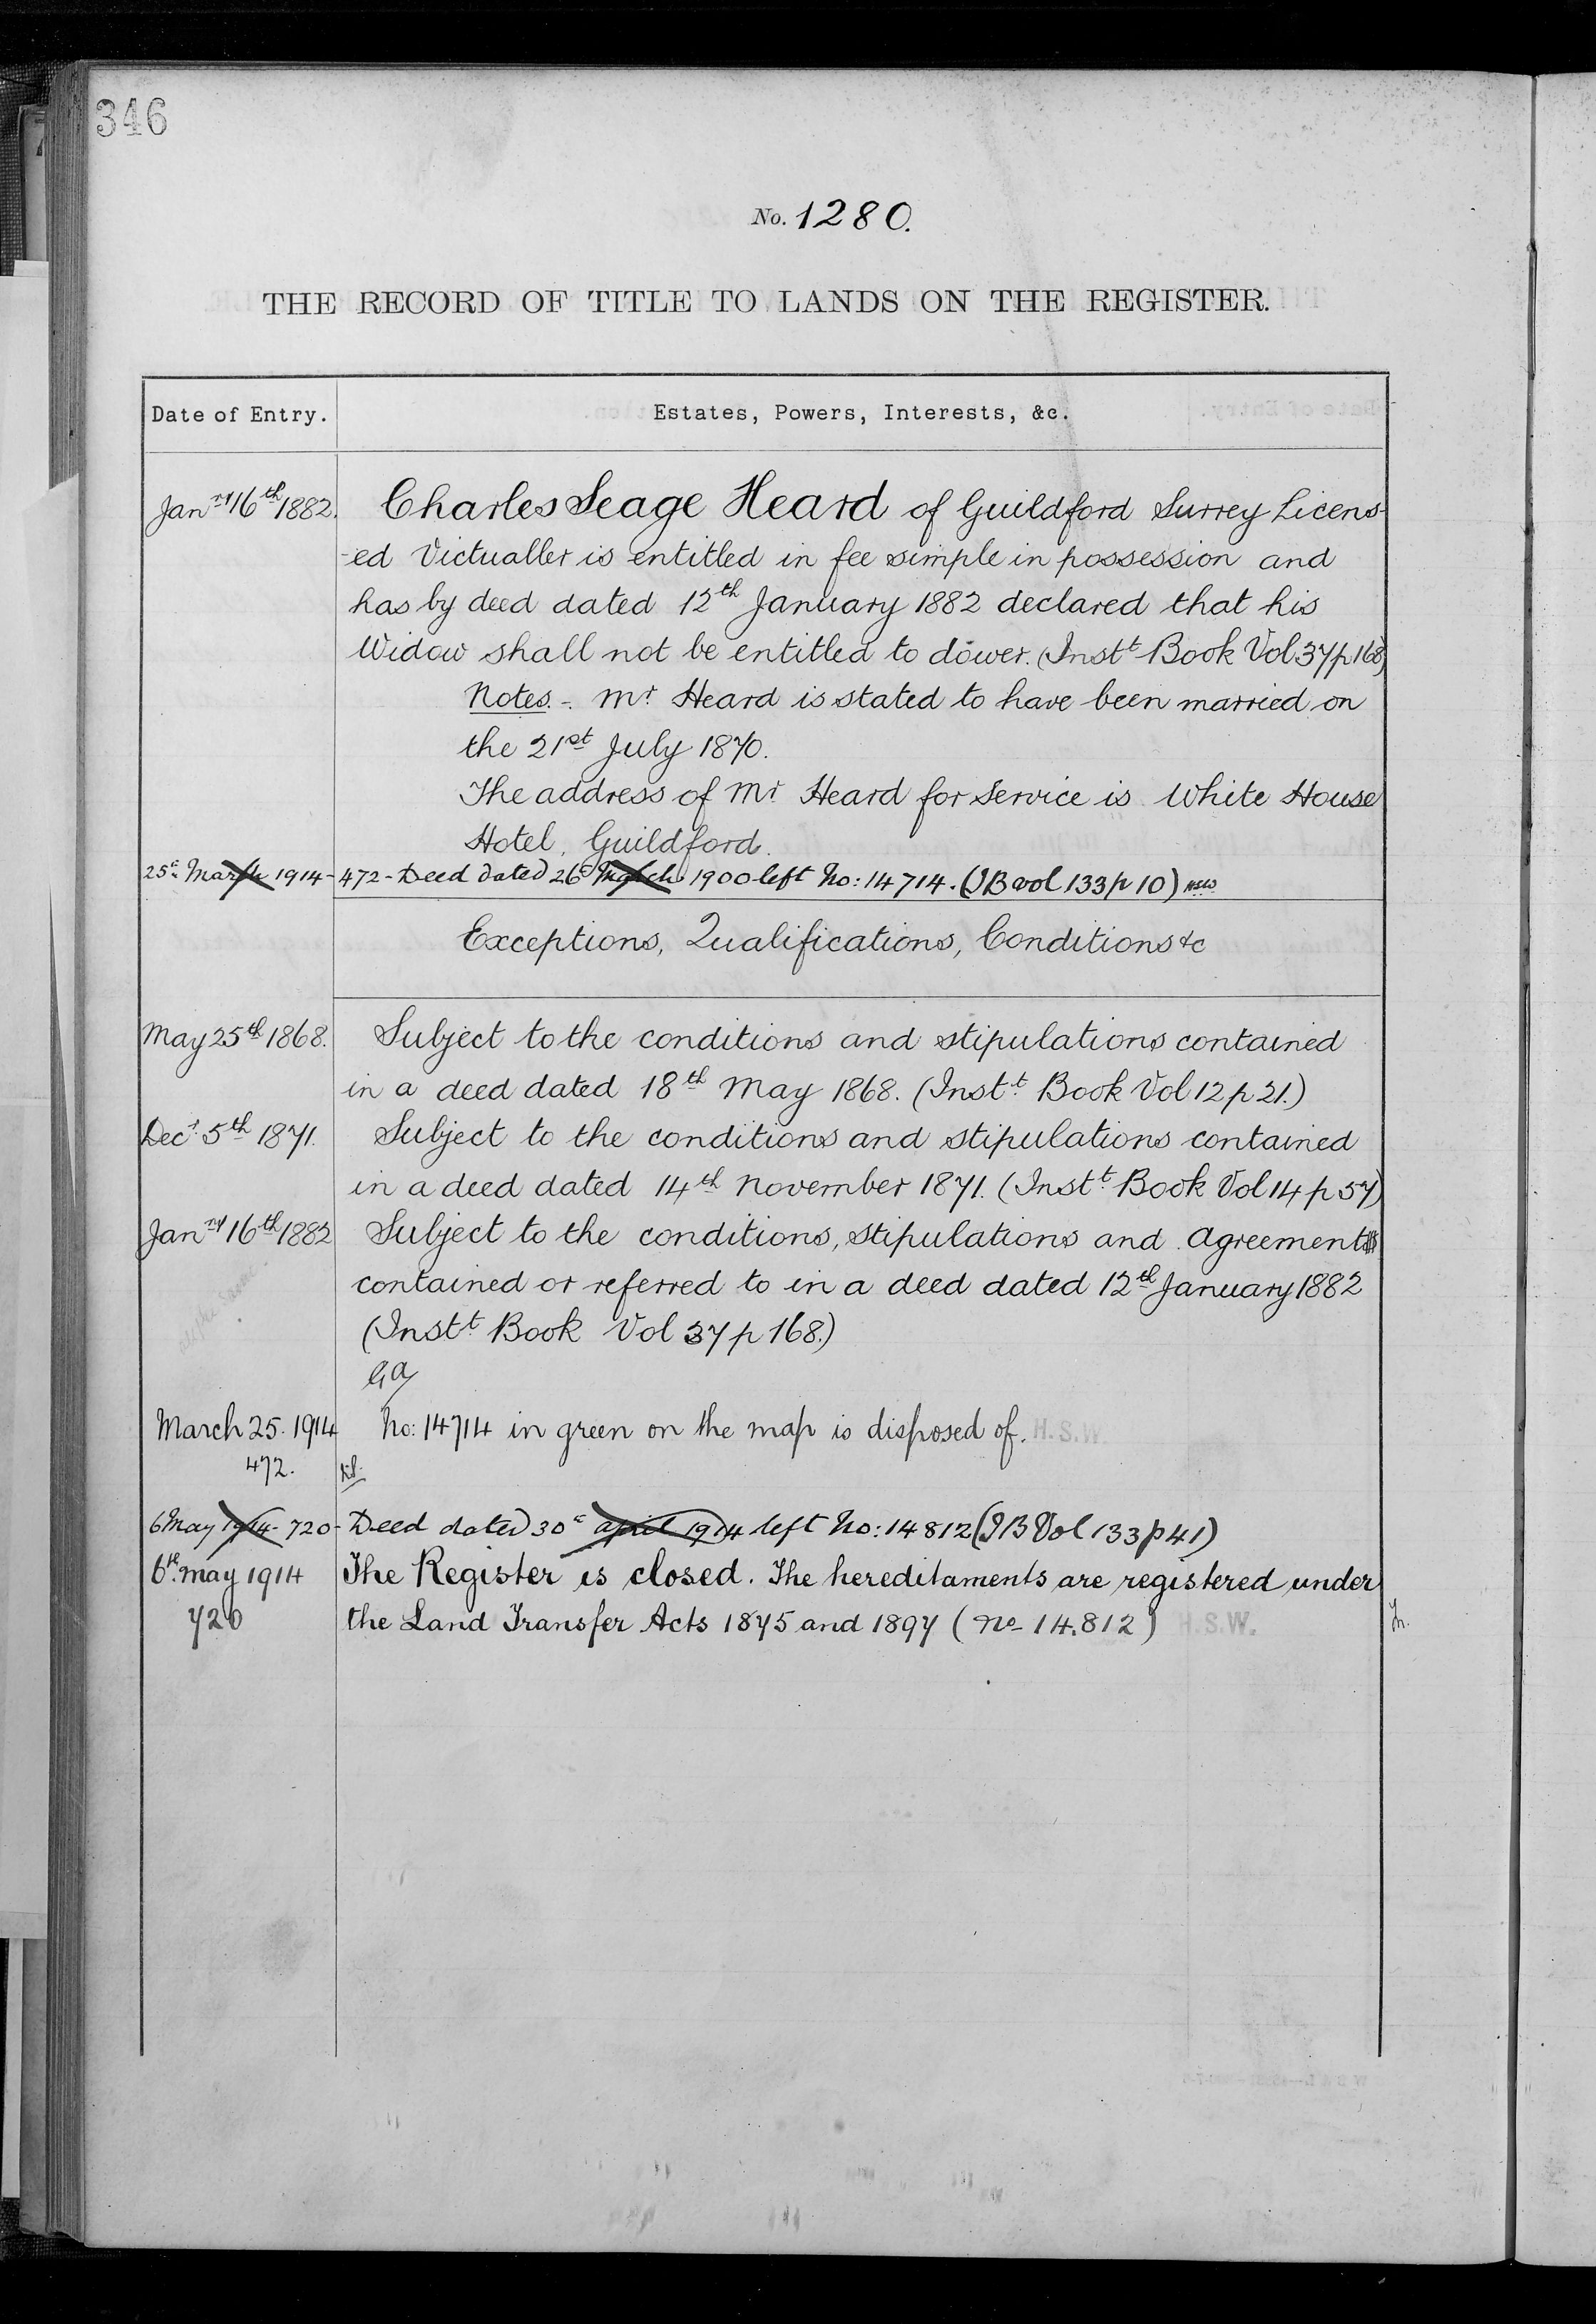 346
No. 1280.
THE RECORD OF TITLE TO LANDS ON THE REGISTER.
Date of Entry. Estates, Powers, Interests, &c.
Janry 16th 1882. Charles Seage Heard of Guildford Surrey Licens-
-ed Victualler is entitled in fee simple in possession and
has by deed dated 12th January 1882 declared that his
Widow shall not be entitled to dower. (Instt Book Vol 37 p 168)
Notes. - Mr Heard is stated to have been married on
the 21st July 1870.
The address of Mr Heard for Service is White House
Hotel, Guildford.
25th March 1914 - 472 - Deed dated 26th March 1900 left No: 14714. (IB vol 133 p 10) HSW
Exceptions, Qualifications, Conditions &c
May 25th 1868. Subject to the conditions and stipulations contained
in a deed dated 18th May 1868. (Instt Book Vol 12 p 21.)
Decr 5th 1871. Subject to the conditions and stipulations contained
in a deed dated 14th November 1871. (Instt Book Vol 14 p 57)
Janry 16th 1882 Subject to the conditions, stipulations and agreements
contained or referred to in a deed dated 12th January 1882
(Instt Book Vol 37 p 168.)
GA
March 25. 1914 No: 14714 in green on the map is disposed of. H.S.W.
472.
6 May 1914 - 720 - Deed dated 30th april 1914 left No: 14812 (IB Vol 133 p 41)
6th May 1914 The Register is closed. The hereditaments are registered under
720 the Land Transfer Acts 1875 and 1897 (No 14.812) H.S.W.